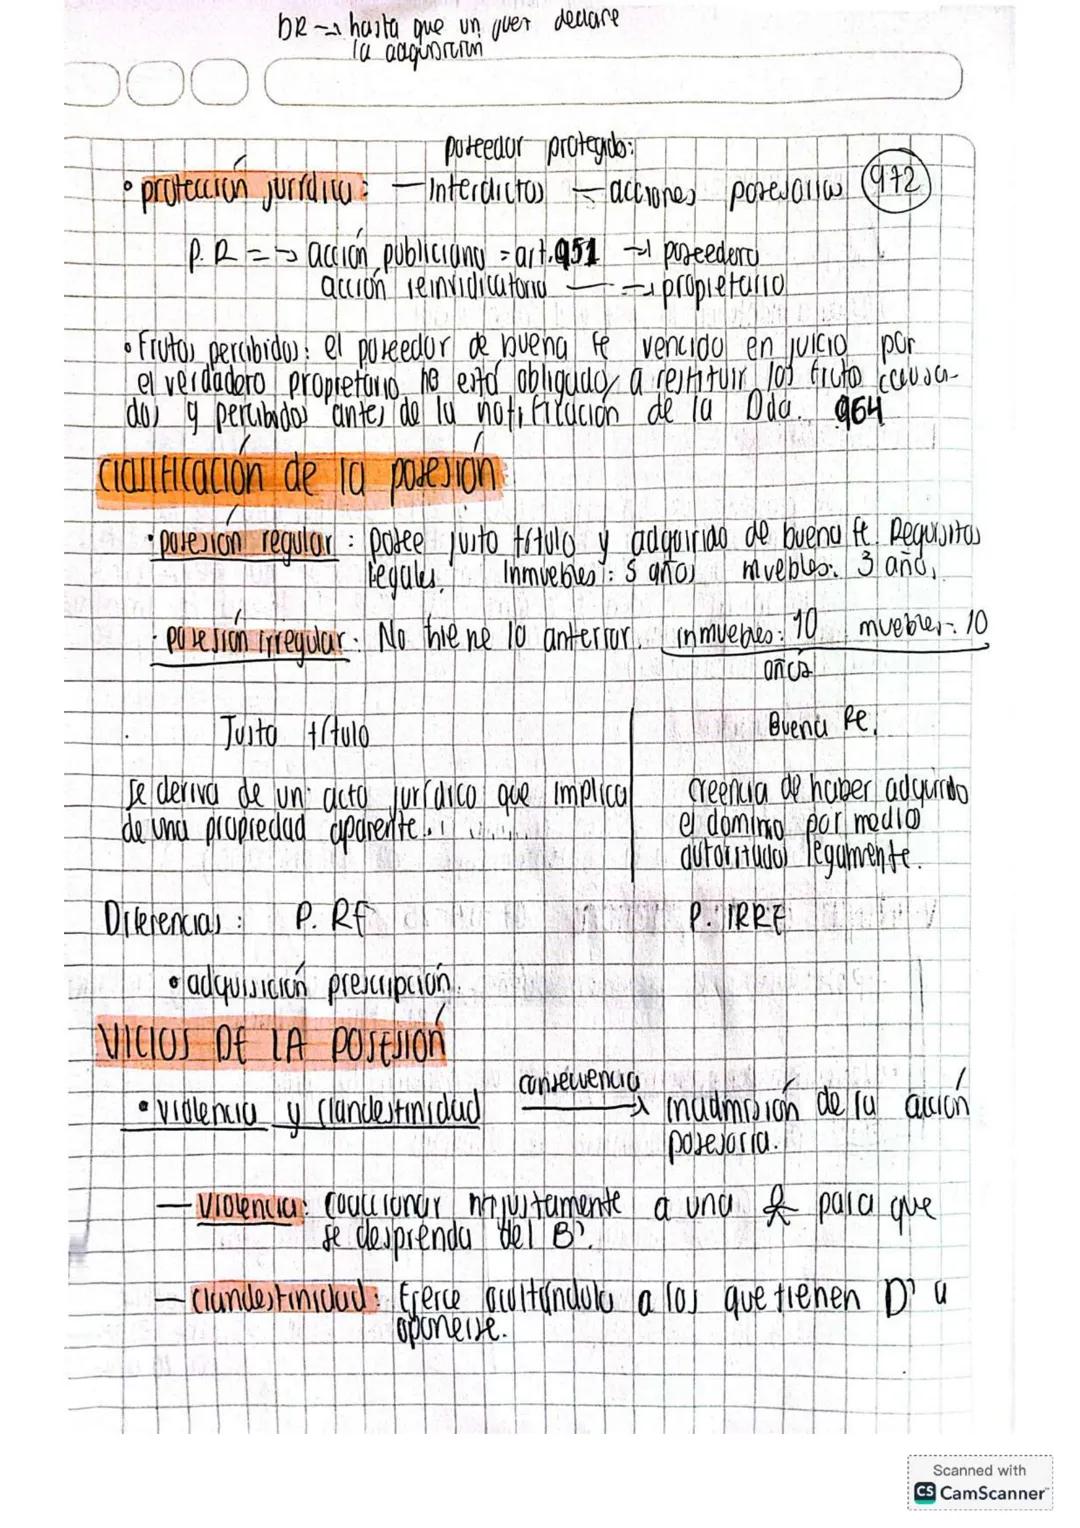 DR → hasta que un juez declare
la adquisición
poseedor protegido:
• protección jurídica: — Interdictos — acciones posesorias 972
P. R = → acción publiciana = art. 951 → poseedora
acción reinvidicatoria —→ propietario
• Frutos percibidos: el poseedor de buena fe vencido en juicio por
el verdadero propietario no está obligado a restituir los fruto causa-
dos y percibidos antes de la notificación de la Dda. 964
Clasificación de la posesión
• posesión regular: Posee justo título y adquirido de buena fe. Requisitos
Legales. Inmuebles: 5 años muebles: 3 años,
· posesión irregular: No tiene lo anterior. inmuebles: 10 muebles: 10
años
Justo título
Buena fe.
Se deriva de un acto jurídico que implica
de una propiedad aparente.
creencia de haber adquirido
el dominio por medio
autorizados legamente.
Diferencias: P. RE P. IRRE
• adquisición prescripción.
VICIOS DE LA POSESIÓN
• violencia y clandestinidad consecuencia → inadmisión de la acción
posesoria.
— Violencia: Coaccionar injustamente a una para que
se desprenda del B'.
— clandestinidad: Ejerce ocultándola a los que tienen D' a
oponerse.
Scanned with
CS CamScanner